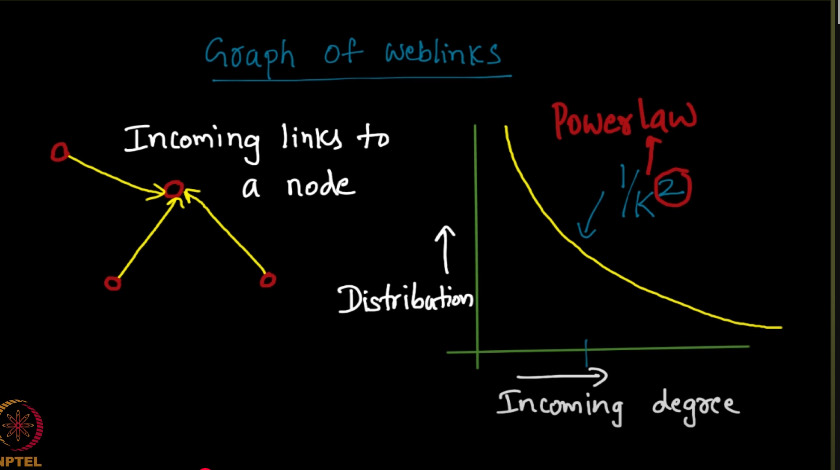 Graph of weblinks
Incoming links to
a node
Power law
1/K²
Distribution
Incoming degree
NPTEL